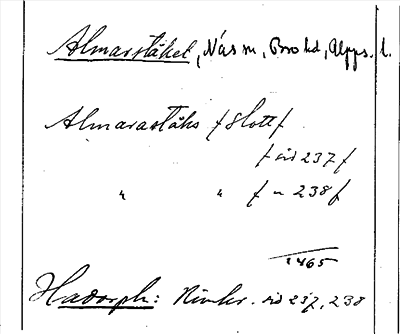 Almarstäket, Näs sn, Bro hd, Upps. l.
Almarastäks / Slott /
/ sid 237 /
" " / " 238 /
1465
Hadorph: Rimkr. sid 237, 238